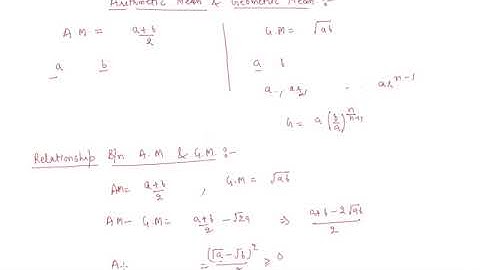 Arithmetic Mean & Geometric Mean :-
A M = a+b/2
G.M = √ab
a b
a b
a , ar, - ar^n-1
G = a (b/a)^n/n+1
Relationship B/n A.M & G.M :-
AM = a+b/2 , G.M = √ab
AM - G.M = a+b/2 - √2a ⇒ a+b-2√ab/2
= (√a-√b)²/2 ≥ 0